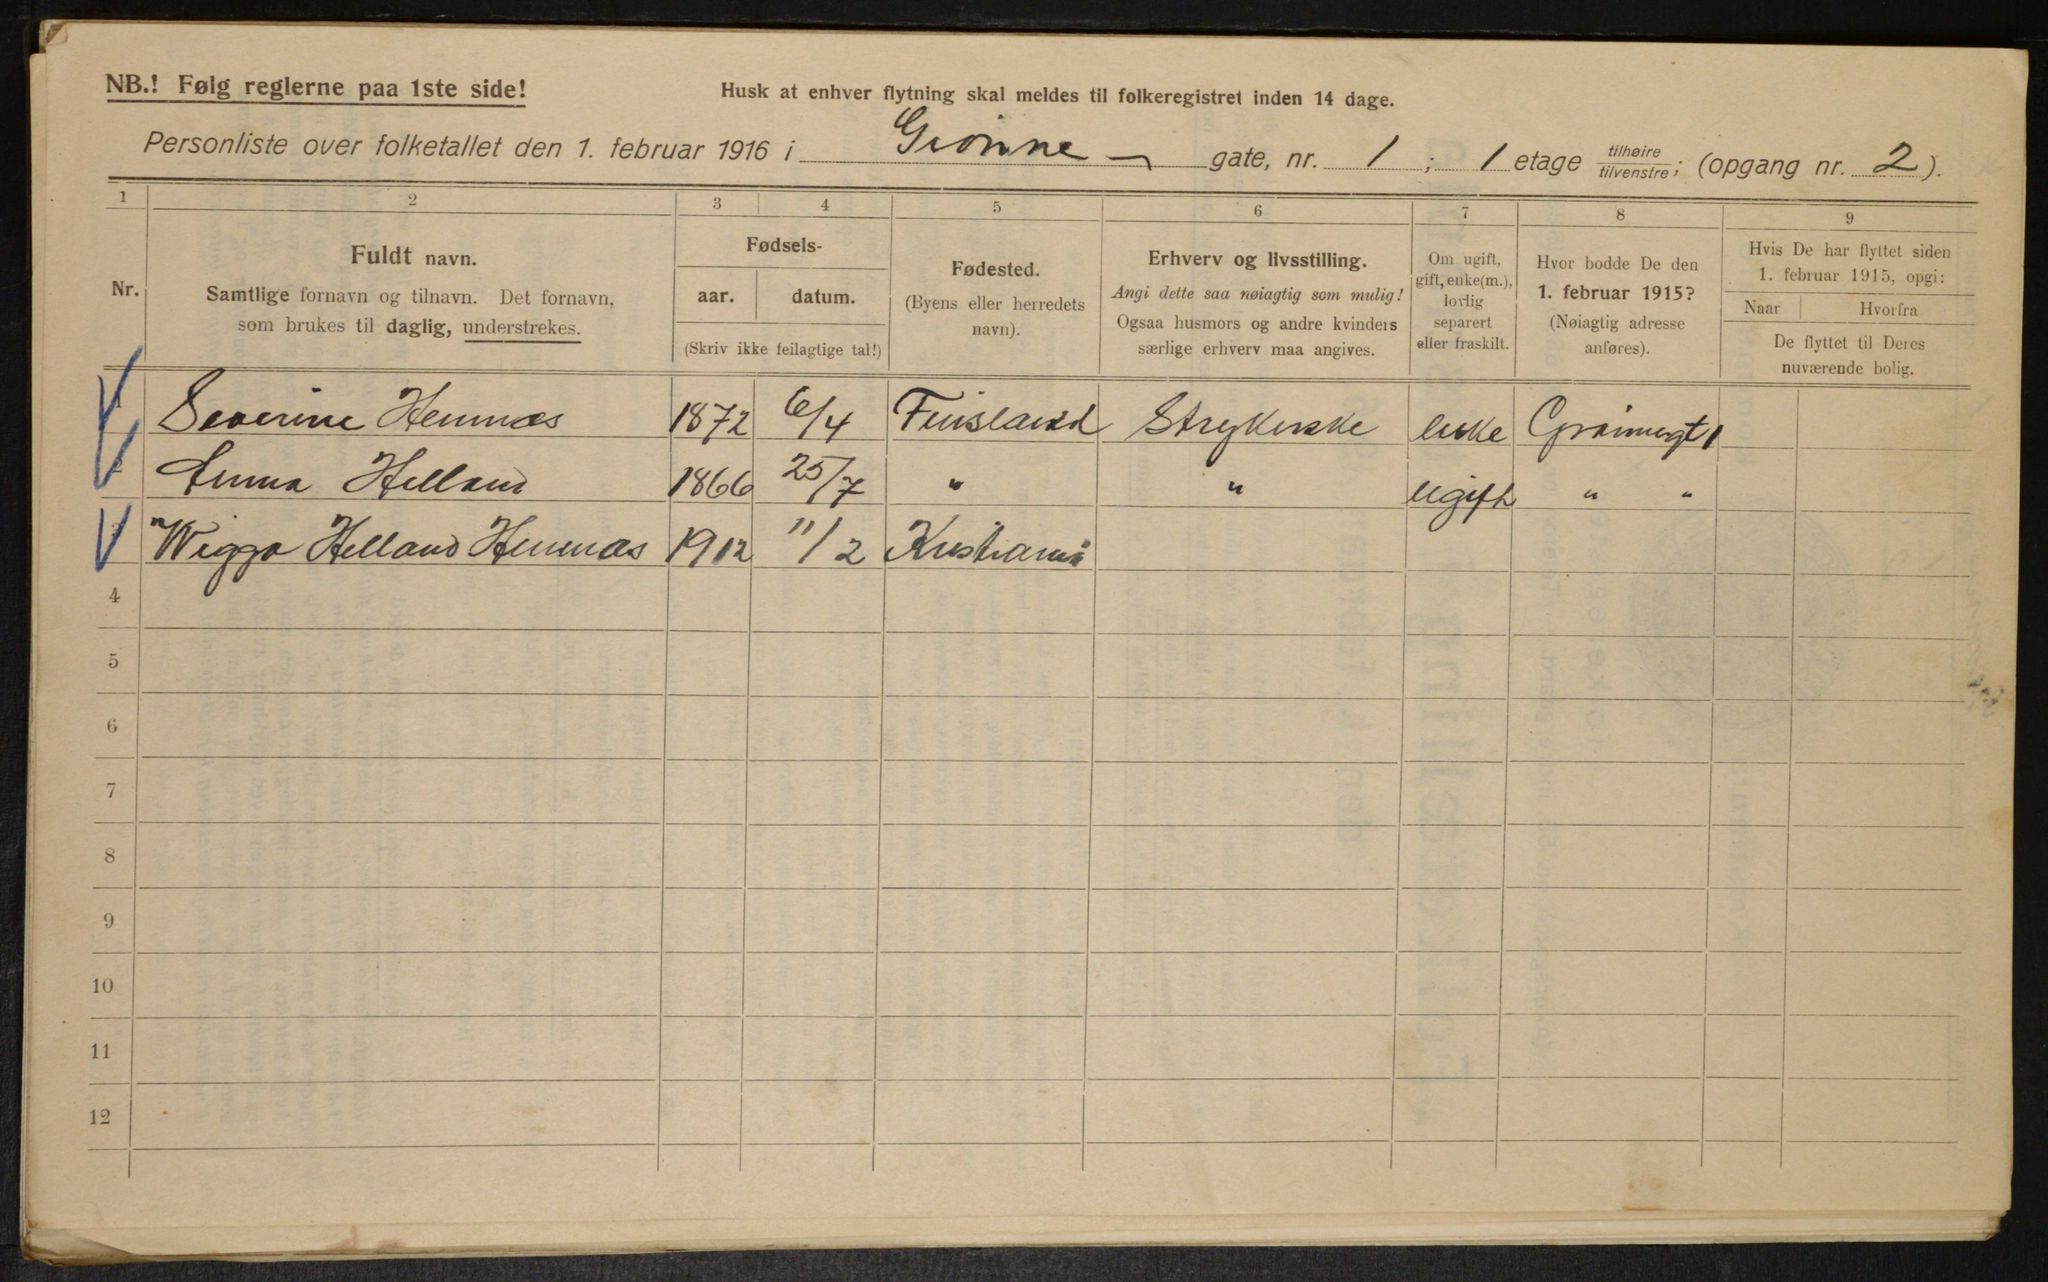 NB.! Følg reglerne paa 1ste side!
Husk at enhver flytning skal meldes til folkeregistret inden 14 dage.
Personliste over folketallet den 1. februar 1916 i Grønne gate, nr. 1 ; 1 etage tilhøire tilvenstre; (opgang nr. 2).
1 2 3 4 5 6 7 8 9
Nr.
Fuldt navn.
Samtlige fornavn og tilnavn. Det fornavn,
som brukes til daglig, understrekes.
Fødsels-
aar. datum.
(Skriv ikke feilagtige tal!)
Fødested.
(Byens eller herredets
navn).
Erhverv og livsstilling.
Angi dette saa nøiagtig som mulig!
Ogsaa husmors og andre kvinders
særlige erhverv maa angives.
Om ugift,
gift, enke(m.),
lovlig
separert
eller fraskilt.
Hvor bodde De den
1. februar 1915?
(Nøiagtig adresse
anføres).
Hvis De har flyttet siden
1. februar 1915, opgi:
Naar Hvorfra
De flyttet til Deres
nuværende bolig.
Severine Hennæs 1872 6/4 Finsland Strykerske enke Grønnegt 1
Anna Helland 1866 25/7 " " ugift " "
3 Wiggo Helland Hennæs 1912 11/2 Kristiania
4
5
6
7
8
9
10
11
12